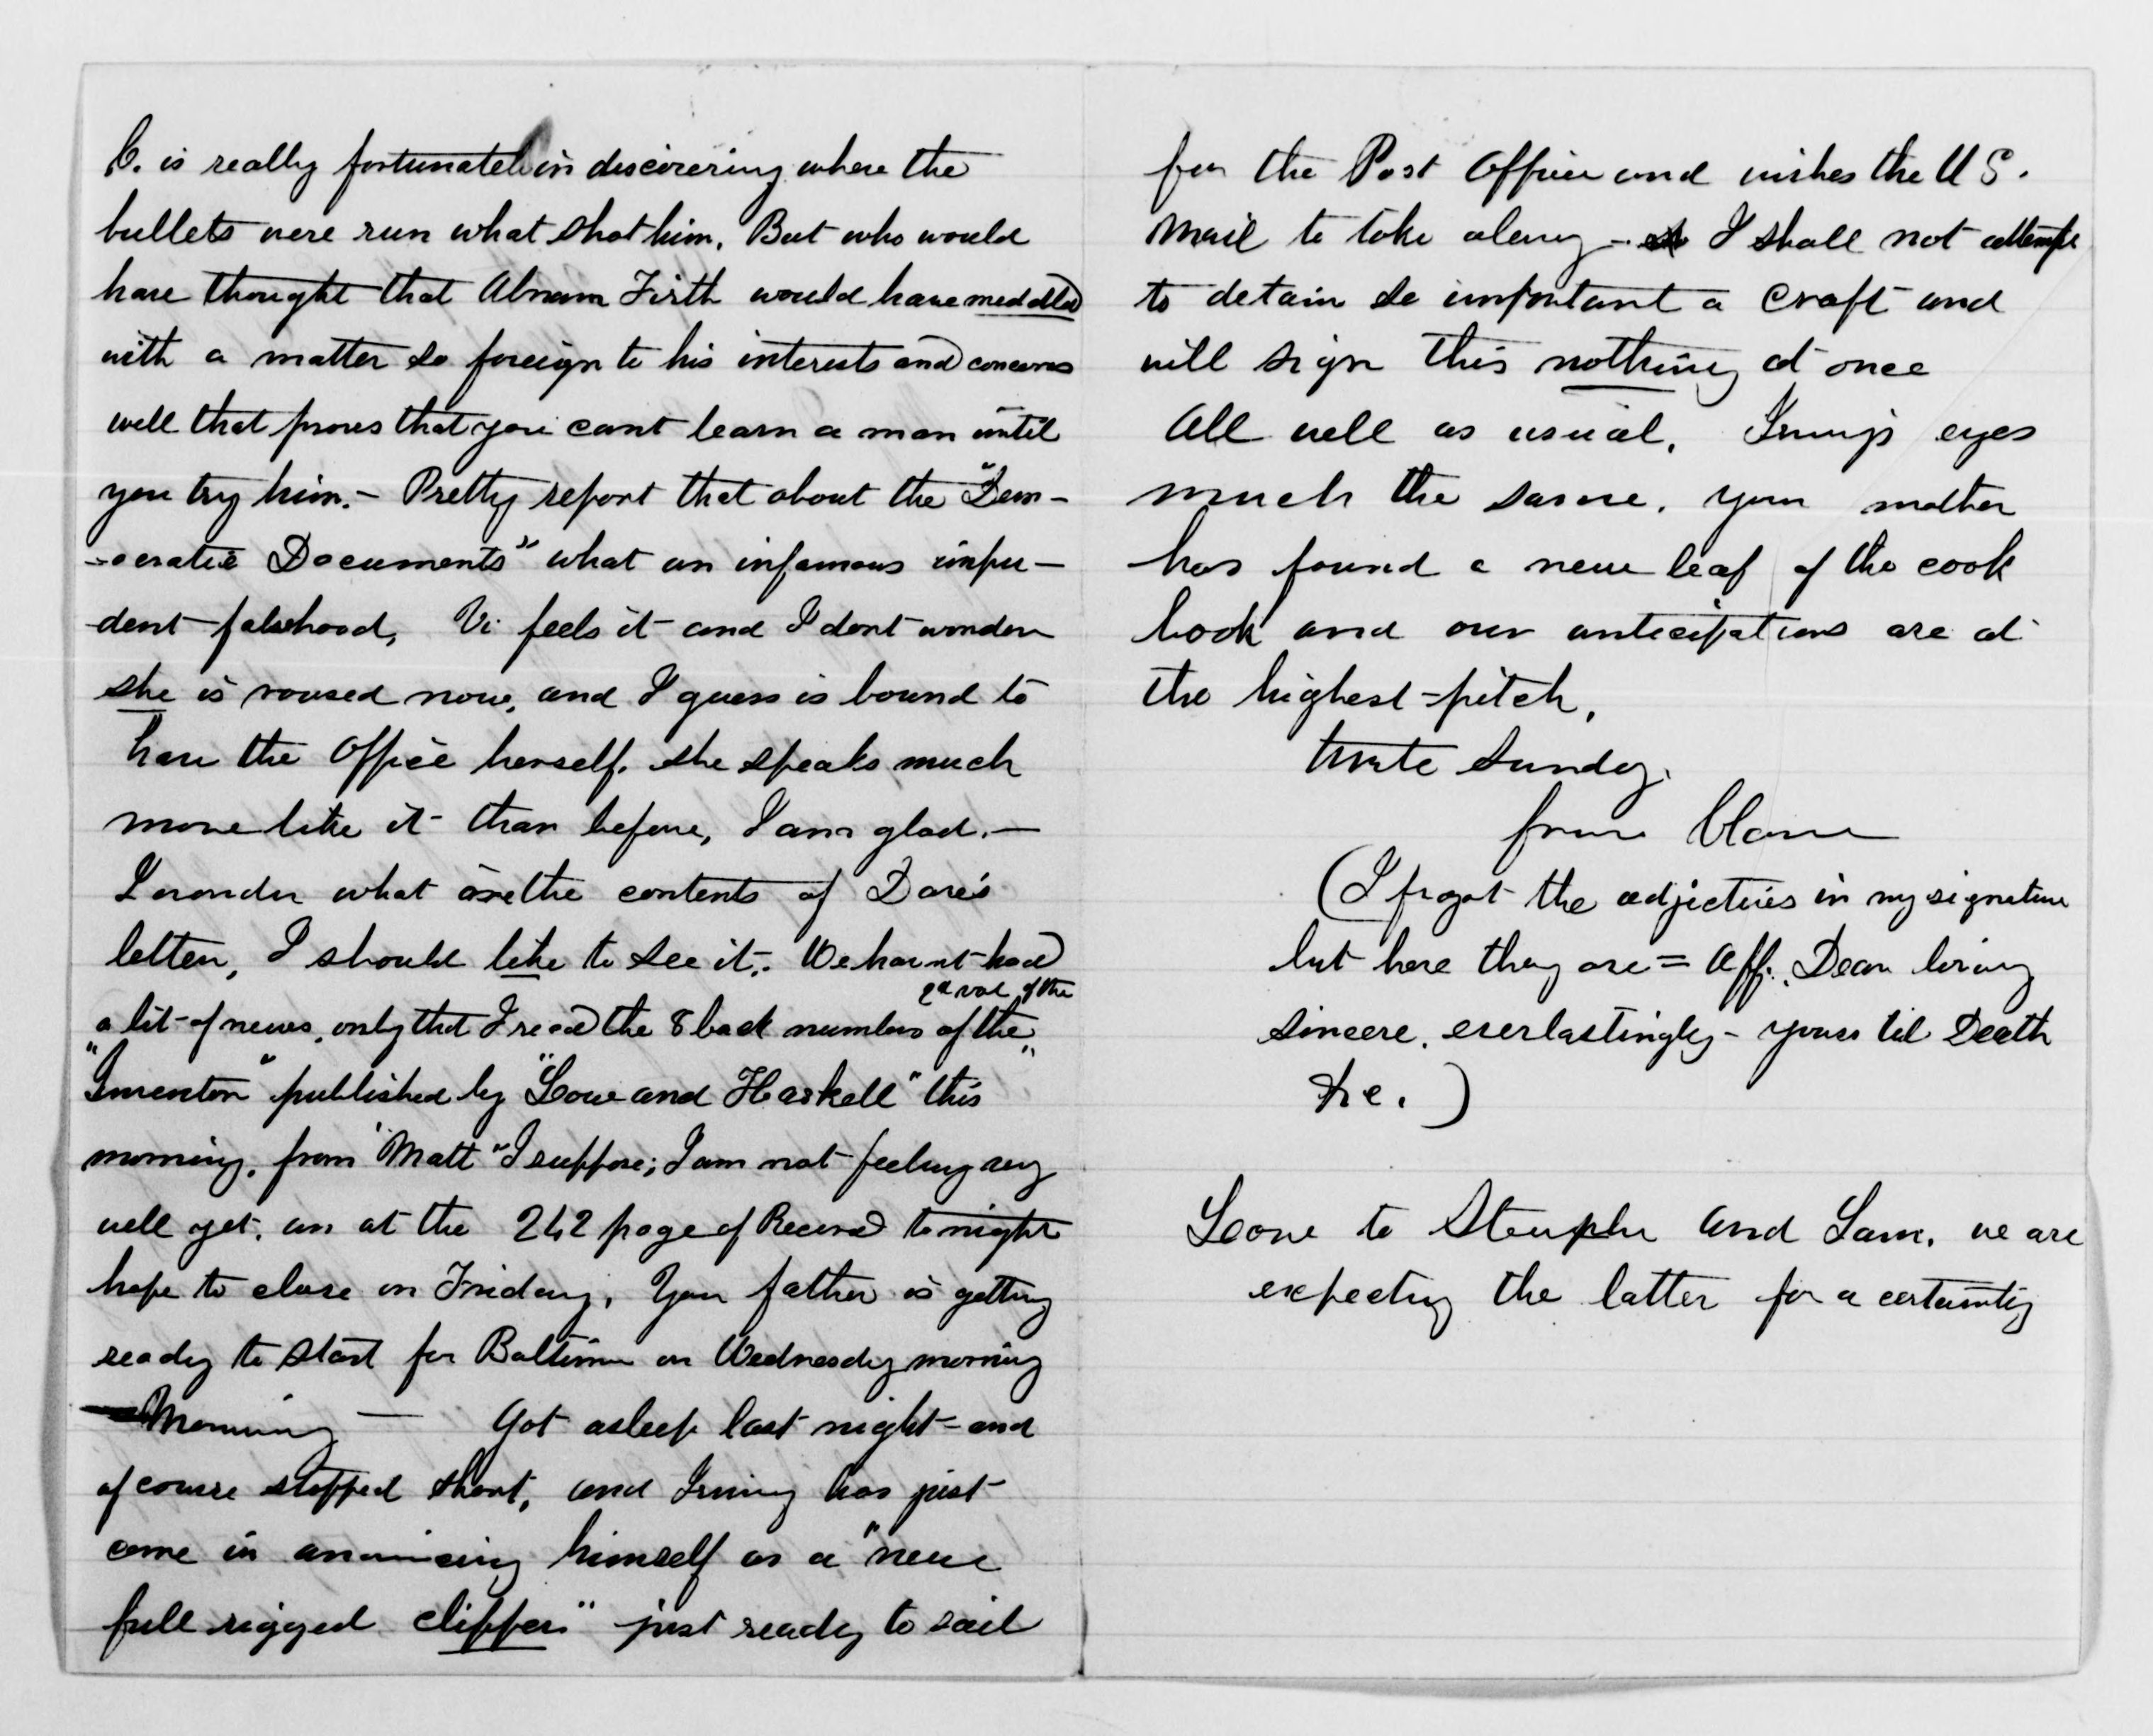 C. is really fortunate in discovering where the
bullets were run what shot him. But who would
have thought that Abram Firth would have meddled
with a matter so foreign to his interests and concerns
well that proves that you cant learn a man until
you try him. - Pretty report that about the "Dem-
-ocratic Documents" what an infamous impu-
dent falsehood, Vi feels it and I dont wonder
she is roused now, and I guess is bound to
have the Office herself. she speaks much
more like it than before, I am glad. -
I wonder what are the contents of Dave's
letter, I should like to see it. We havnt had
2d vol of the
a bit of news, only that I read the 8 back numbers of the
"Inventor" published by "Low and Haskell" this
morning, from "Matt" I suppose; I am not feeling very
well yet, am at the 242 page of Record tonight
hope to close on Friday. Your father is getting
ready to start for Baltimore on Wednesday morning
Morning — Got asleep last night and
of course stopped short, and Irving has just
come in announcing himself as a "new
full rigged clipper" just ready to sail
for the Post Office and wishes the U S.
Mail to take along - I shall not attempt
to detain so important a craft and
will sign this nothing at once
All well as usual. Irving's eyes
much the same. your mother
has found a new leaf of the cook
book and our anticipations are at
the highest pitch.
Wrote Sunday.
from Clara
(I forgot the adjectives in my signature
but here they are = Aff. Dear loving
sincere, everlastingly - yours til Death
&c.)
Love to Stephen and Sam. we are
expecting the latter for a certainty